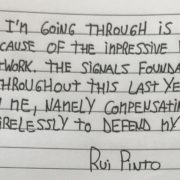 I'M GOING THROUGH IS
CAUSE OF THE IMPRESSIVE
TWORK. THE SIGNALS FOUNDA
THROUGHOUT THIS LAST YE
ME, NAMELY COMPENSATIN
RELESSLY TO DEFEND MY
RUI PINTO